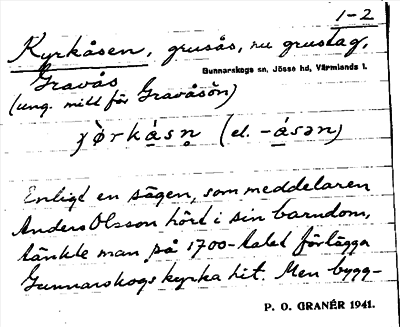 1-2
Kyrkåsen, grusås, nu grustag,
Gravås
Gunnarskogs sn, Jösse hd, Värmlands l.
(ung. mitt för Gravåsön)
(el. -ásən)
Enligt en sägen, som meddelaren
Anders Olsson hört i sin barndom,
tänkte man på 1700-talet förlägga
Gunnarskogs kyrka hit. Men bygg-
P. O. GRANÉR 1941.